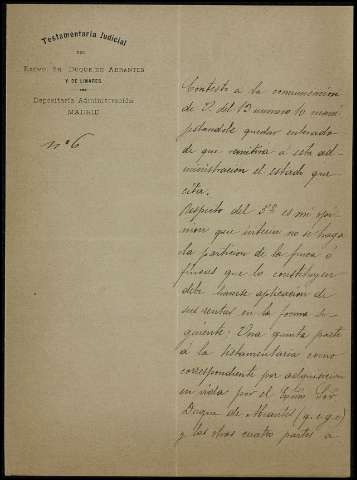 Testamentaria Judicial
DEL
EXCMO. SR. DUQUE DE ABRANTES
Y DE LINARES
Depositaría Administración
MADRID
nº 6
Contesto a la comunicacion
de V. del 13 numero 10 mani
festandole quedar enterado
de que remitirá á esta ad-
ministracion el estado que
cita.
Respecto del 5º es mi opi
nion que interin no se haga
la particion de la finca ó
fincas que lo constituyen
debe hacerse aplicacion de
sus rentas en la forma si-
guiente: Una quinta parte
á la testamentaria como
correspondiente por adquisicion
en vida por el Excmo Sor
Duque de Abrantes (q.e.g.e)
y las otras cuatro partes a